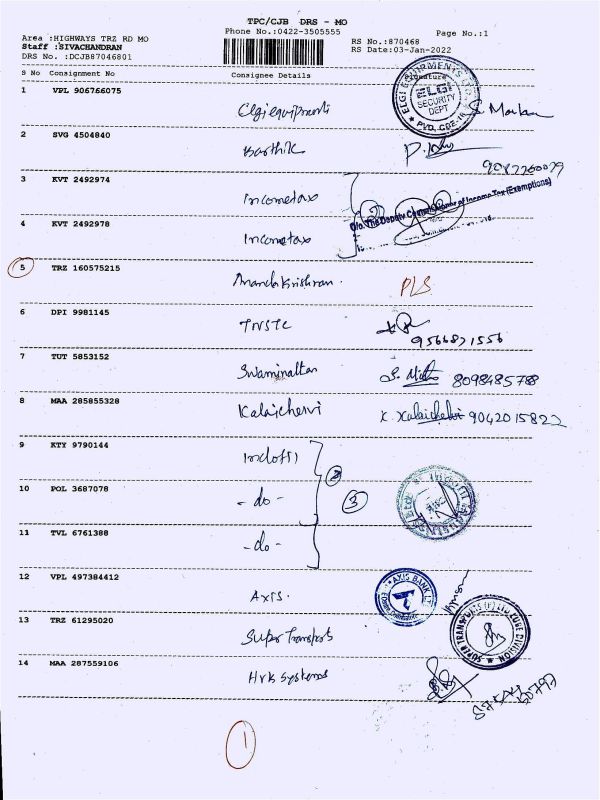 TPC/CJB DRS - MO
Phone No.:0422-3505555
Page No.:1
Area :HIGHWAYS TRZ RD MO
RS No.:870468
Staff :SIVACHANDRAN
RS Date:03-Jan-2022
DRS No. :DCJB87046801
S No Consignment No Consignee Details Signature
1 VPL 906766075
Elgi equipments
ELGI EQUIPMENTS LTD
ELGI SECURITY DEPT
PVD, CBE-14
2 SVG 4504840
Karthik
3 KVT 2492974
Incometax
O/o. The Deputy Commissioner of Income Tax (Exemptions)
4 KVT 2492978
Incometax
5 TRZ 160575215
Ananda Krishnan.
PLS
6 DPI 9981145
TNSTC
9566871556
7 TUT 5853152
Swaminathan
8098485788
8 MAA 285855328
Kalaichelvi
K. Kalaichelvi 9042015822
9 KTY 9790144
10 POL 3687078
- do -
3
11 TVL 6761388
- do -
12 VPL 497384412
Axis.
AXIS BANK LTD
13 TRZ 61295020
Super Transports
SUPER TRANSPORTS (P) LTD CUBE DIVISION
14 MAA 287559106
Hrk systems
1